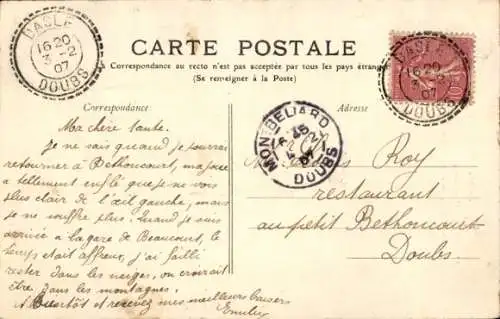 DASLE
16 20
3-2
07
DOUBS
CARTE POSTALE
Correspondance au recto n'est pas acceptée par tous les pays étran
(Se renseigner à la Poste)
Correspondance
Adresse
DASLE
16 20
07
DOUBS
MONTBELIARD
DOUBS
Ma chère tante.
Je ne sais quand je pourrai
retourner à Bethoncourt, ma joue
a tellement enflé que je ne vois
plus clair de l'œil gauche, mais
je ne souffre plus. Quand je suis
arrivée à la gare de Beaucourt, le
temps était affreux, j'ai failli
rester dans les neiges, on croirait
être dans les montagnes.
A Bientôt et recevez mes meilleurs baisers
Roy
restaurant
au petit Bethoncourt
Doubs.